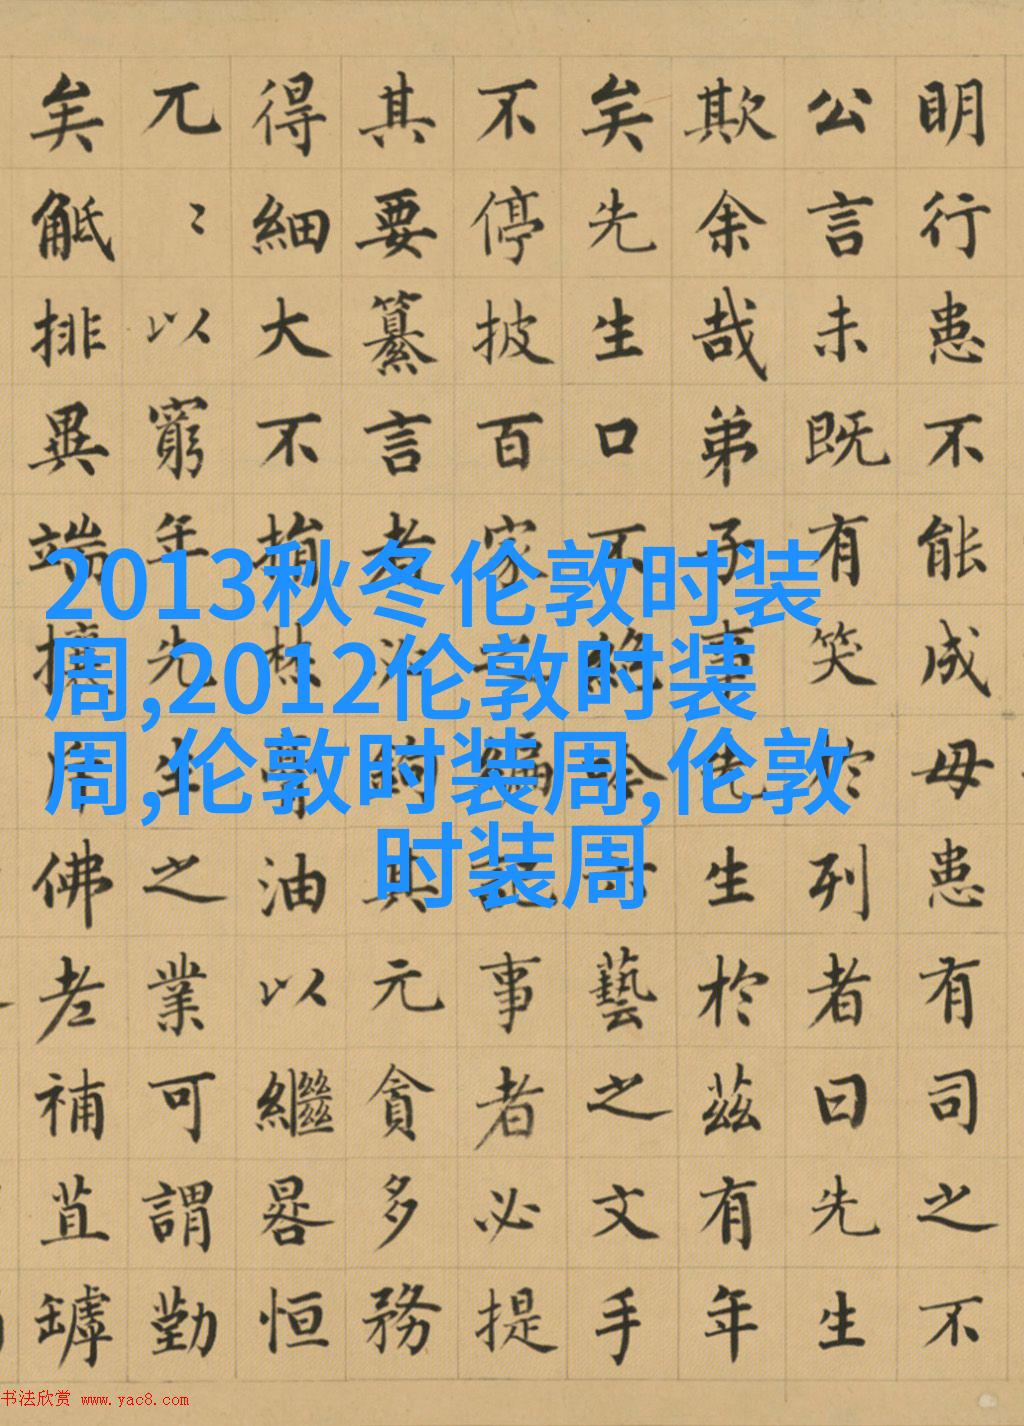 明行患不能成毋患有司之不
公言未既有笑於列者曰先生
欺余哉弟子事先生於茲有年
矣先生口不絕吟六藝之文手
不停披百家之編記事者必提
其要纂言者必鉤其元貪多務
得細大不捐焚膏油以繼晷恒
兀〻以窮年先生之業可謂勤
矣觝排異端攘斥佛老補苴罅
2013秋冬伦敦时装
周,2012伦敦时装
周,伦敦时装周,伦敦
时装周
书法欣赏 www.yac8.com